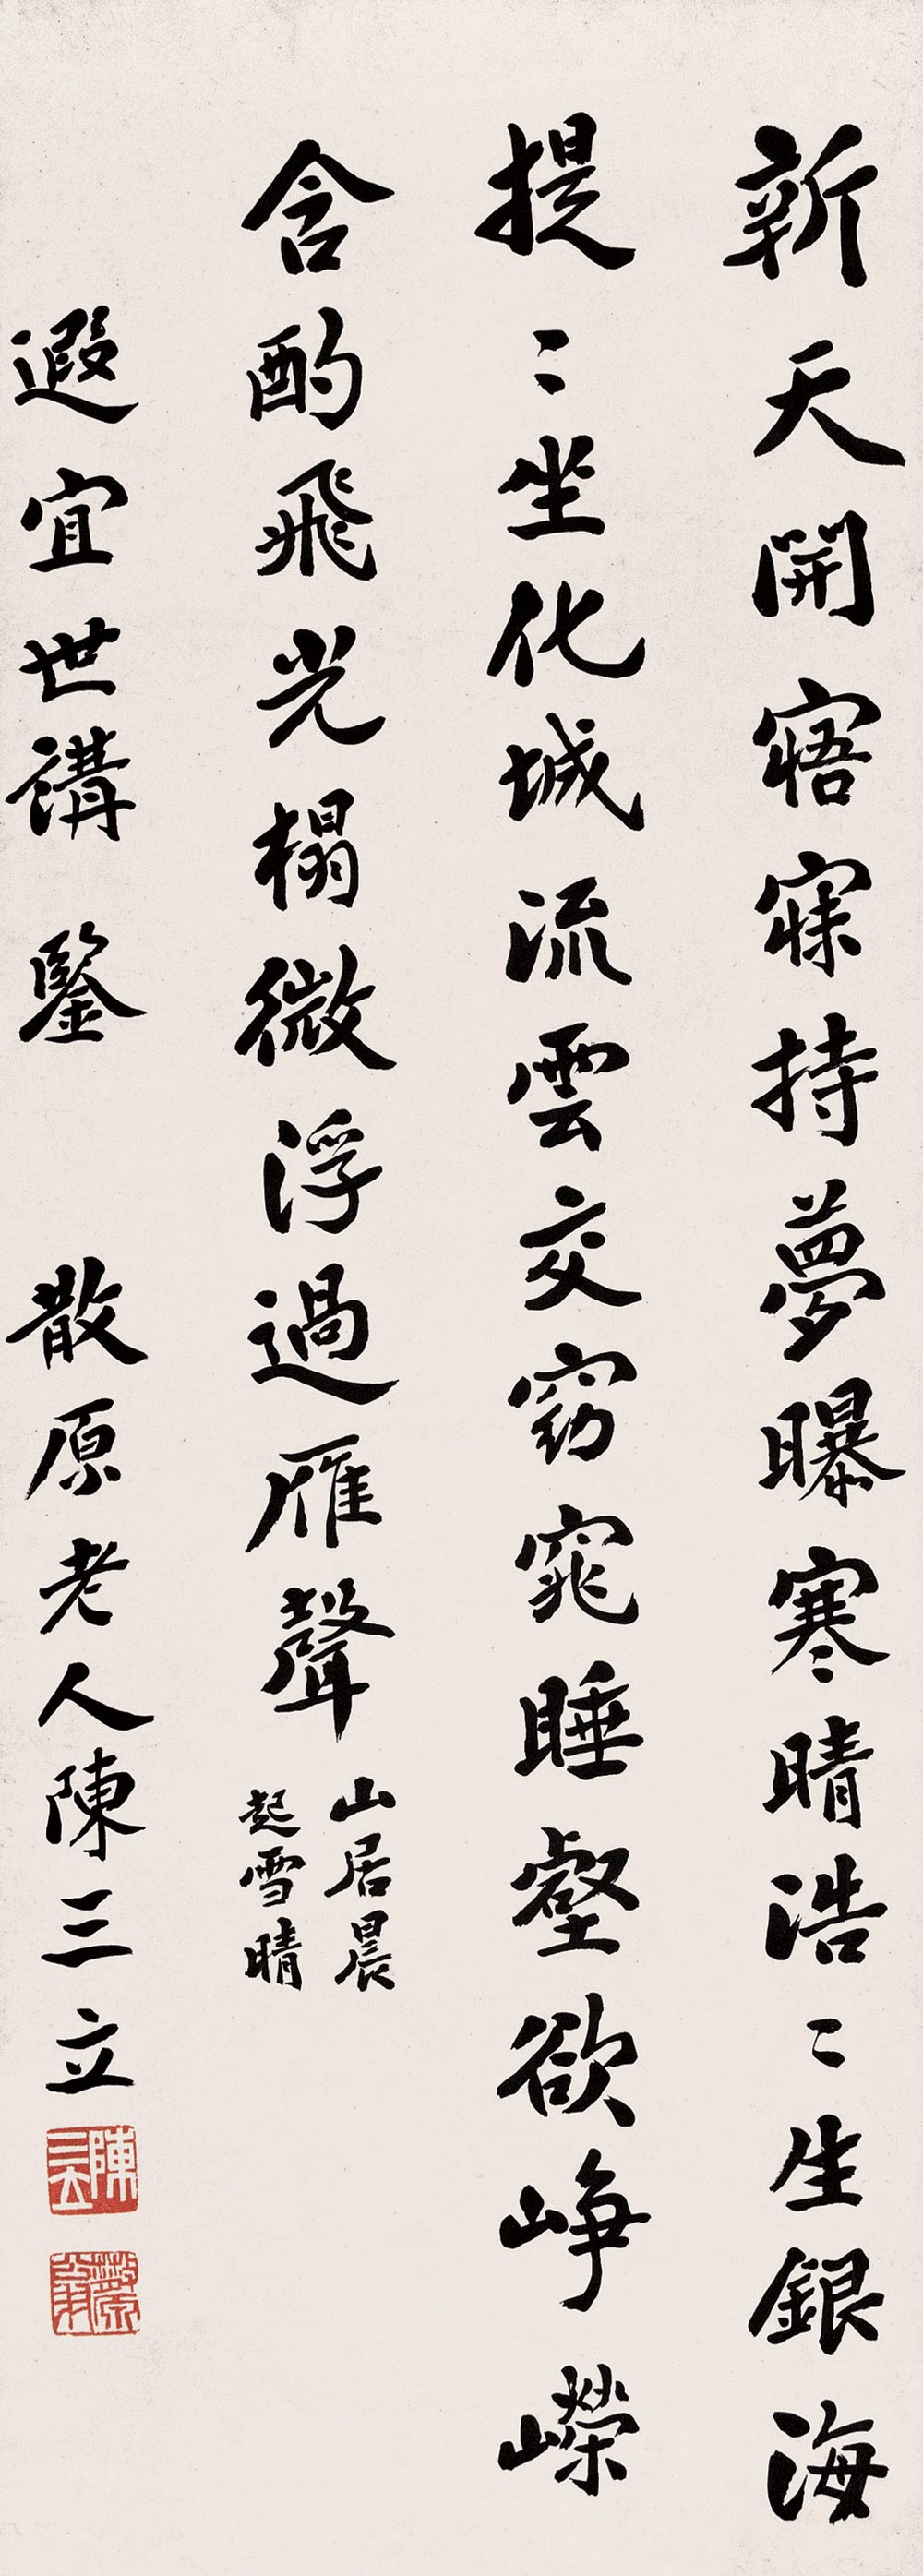 新天開寤寐持夢曝寒晴浩〻生銀海
提〻坐化城流雲交窈窕睡壑欲崢嶸
含酌飛光榻微浮過雁聲
山居晨
起雪晴
遐宜世講鑒 散原老人陳三立
陳三立
散原